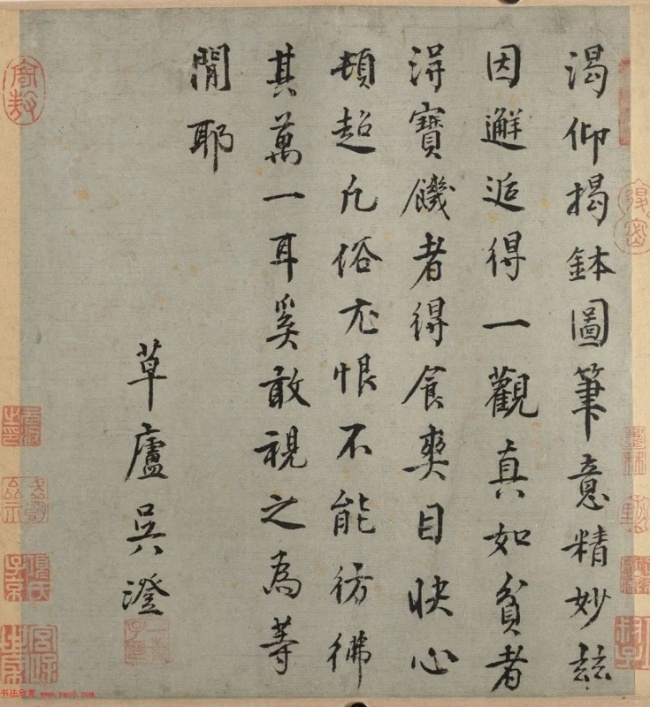 渴仰揭鉢圖筆意精妙玆
因邂逅得一觀真如貧者
得寶饑者得食爽目快心
頓超凡俗尤恨不能彷彿
其萬一耳奚敢視之為等
閒耶
草廬吳澄
書法欣賞 www.yac8.com